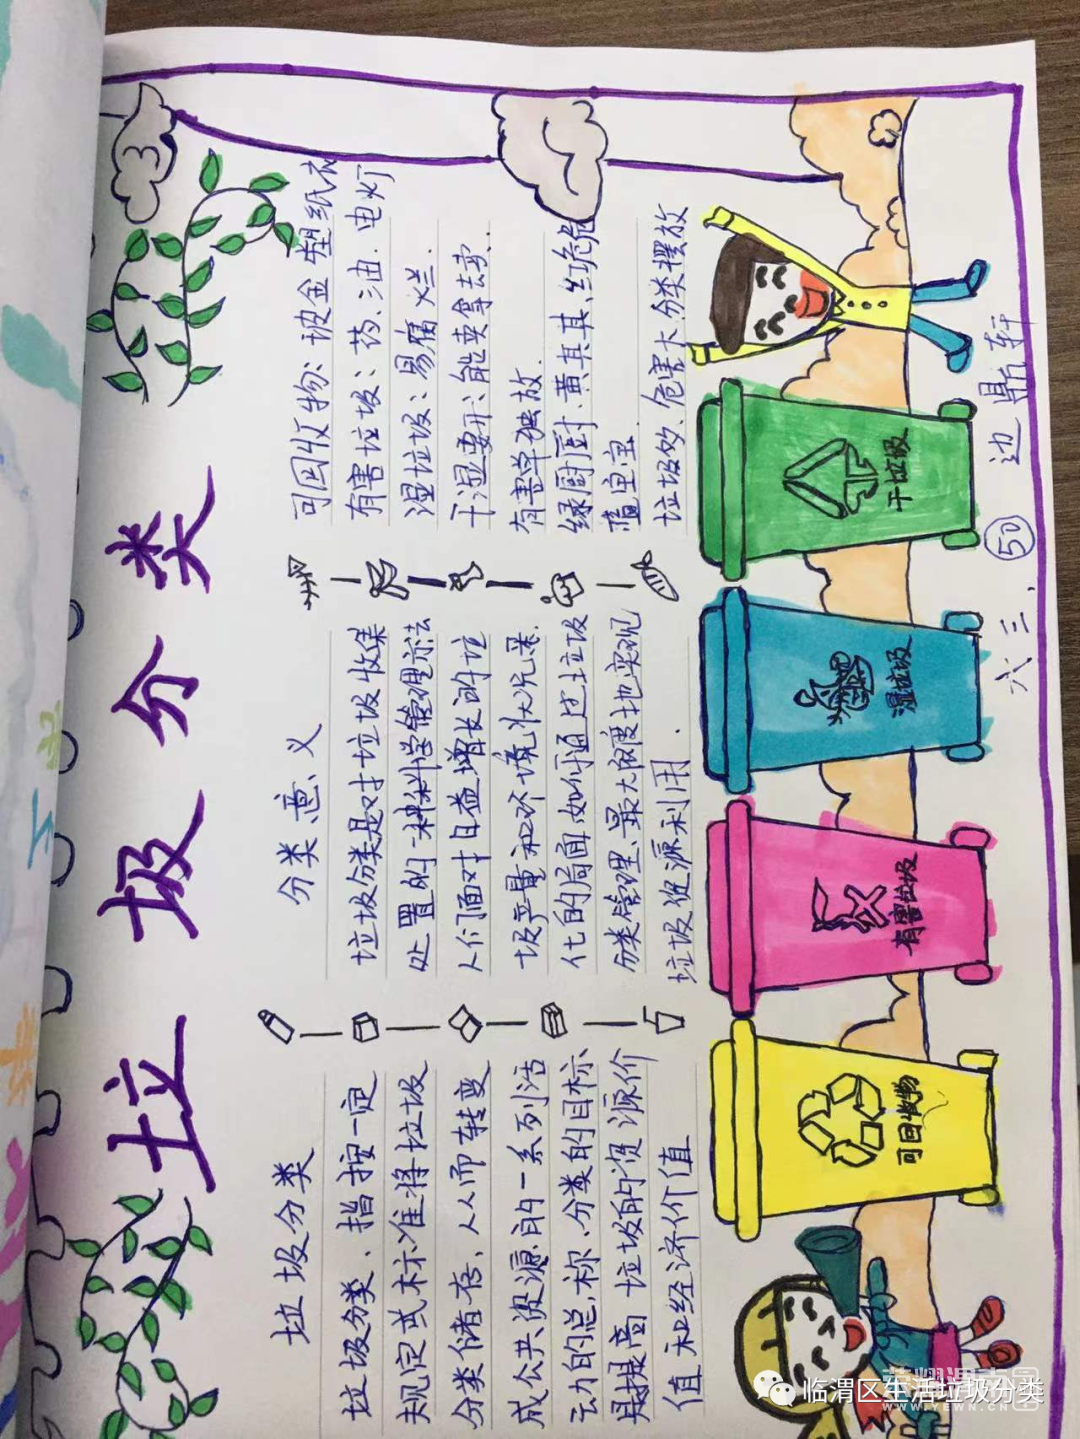 垃圾分类
垃圾分类
垃圾分类、指按一定
规定或标准将垃圾
分类储存，从而转变
成公共资源的一系列活
动的总称.分类的目标
是提高垃圾的资源价
值和经济价值
分类意义
垃圾分类是对垃圾收集
处置的一种科学管理办法
人们面对日益增长的垃
圾产量和环境状况恶
化的局面,如何通过垃圾
分类管理、最大限度地实现
垃圾资源利用.
可回收物：玻金塑纸衣
有害垃圾：药、油.电灯
湿垃圾：易腐烂.
干湿要开：能卖拿去卖..
有害单独放.
绿厨厨.黄其其.红危危
蓝宝宝.
垃圾多、危害大.分类摆放
可回收物
有害垃圾
湿垃圾
干垃圾
六三、50 边鼎轩
临渭区生活垃圾分类
WWW.YEWN.CN